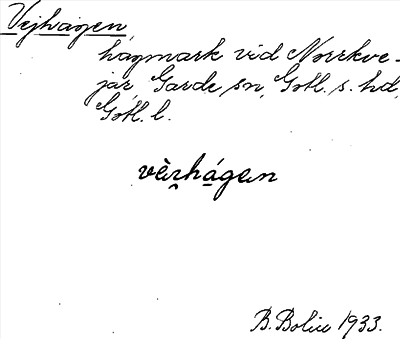 Vejhagen,
hagmark vid Norrkve-
jar, Garde sn, Gotl. s. hd,
Gotl. l.
vèrhágen
B. Bolin 1933.